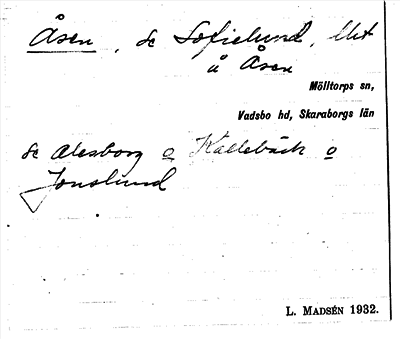 Åsen, se Sofielund, lht
å Åsen
Mölltorps sn,
Vadsbo hd, Skaraborgs län
se Alesborg o Källebäck o
Jonslund
L. MADSÉN 1932.